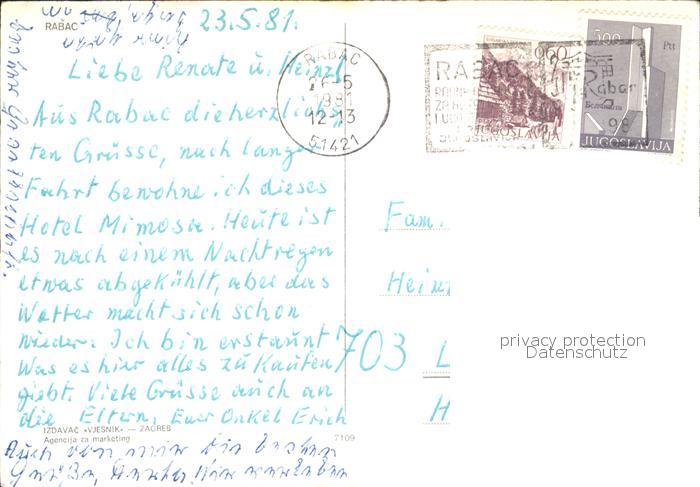 RABAC
23.5.81.
Liebe Renate u. Heinz!
Aus Rabac die herzlichs
ten Grüsse, nach langer
Fahrt bewohne ich dieses
Hotel Mimosa. Heute ist
es nach einem Nachtregen
etwas abgekühlt, aber das
Wetter macht sich schon
wieder. Ich bin erstaunt
was es hier alles zu kaufen
giebt. Viele Grüsse auch an
die Eltern, Euer Onkel Erich
IZDAVAČ «VJESNIK» — ZAGREB
Agencija za marketing
7109
Auch von mir die besten
Grüße,
RABAC
26-5
1981
12-13
51421
RABAC
0.60
JUGOSLAVIJA
300
JUGOSLAVIJA
Fam.
Hein
703 L
H
privacy protection
Datenschutz